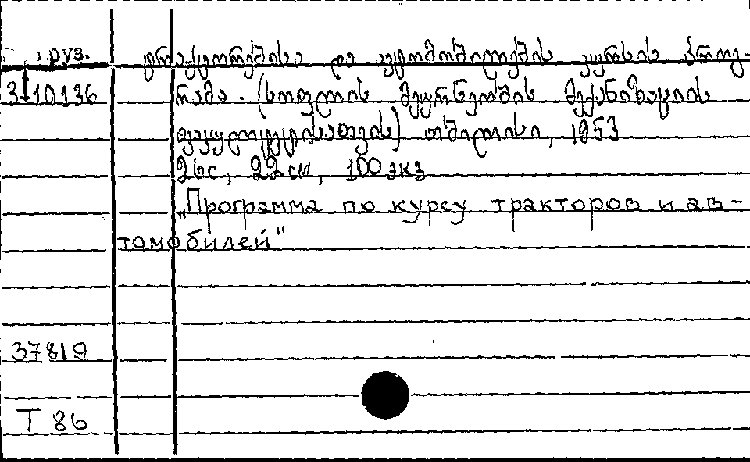 груз. ტრაქტორებისა და ავტომობილების კურსის პროგ-
3-10136 რამა. (სოფლის მეურნეობის მექანიზაციის
ფაკულტეტისათვის) თბილისი, 1953
26с, 22см, 100экз
„Программа по курсу тракторов и ав-
томобилей"
37819
Т 86